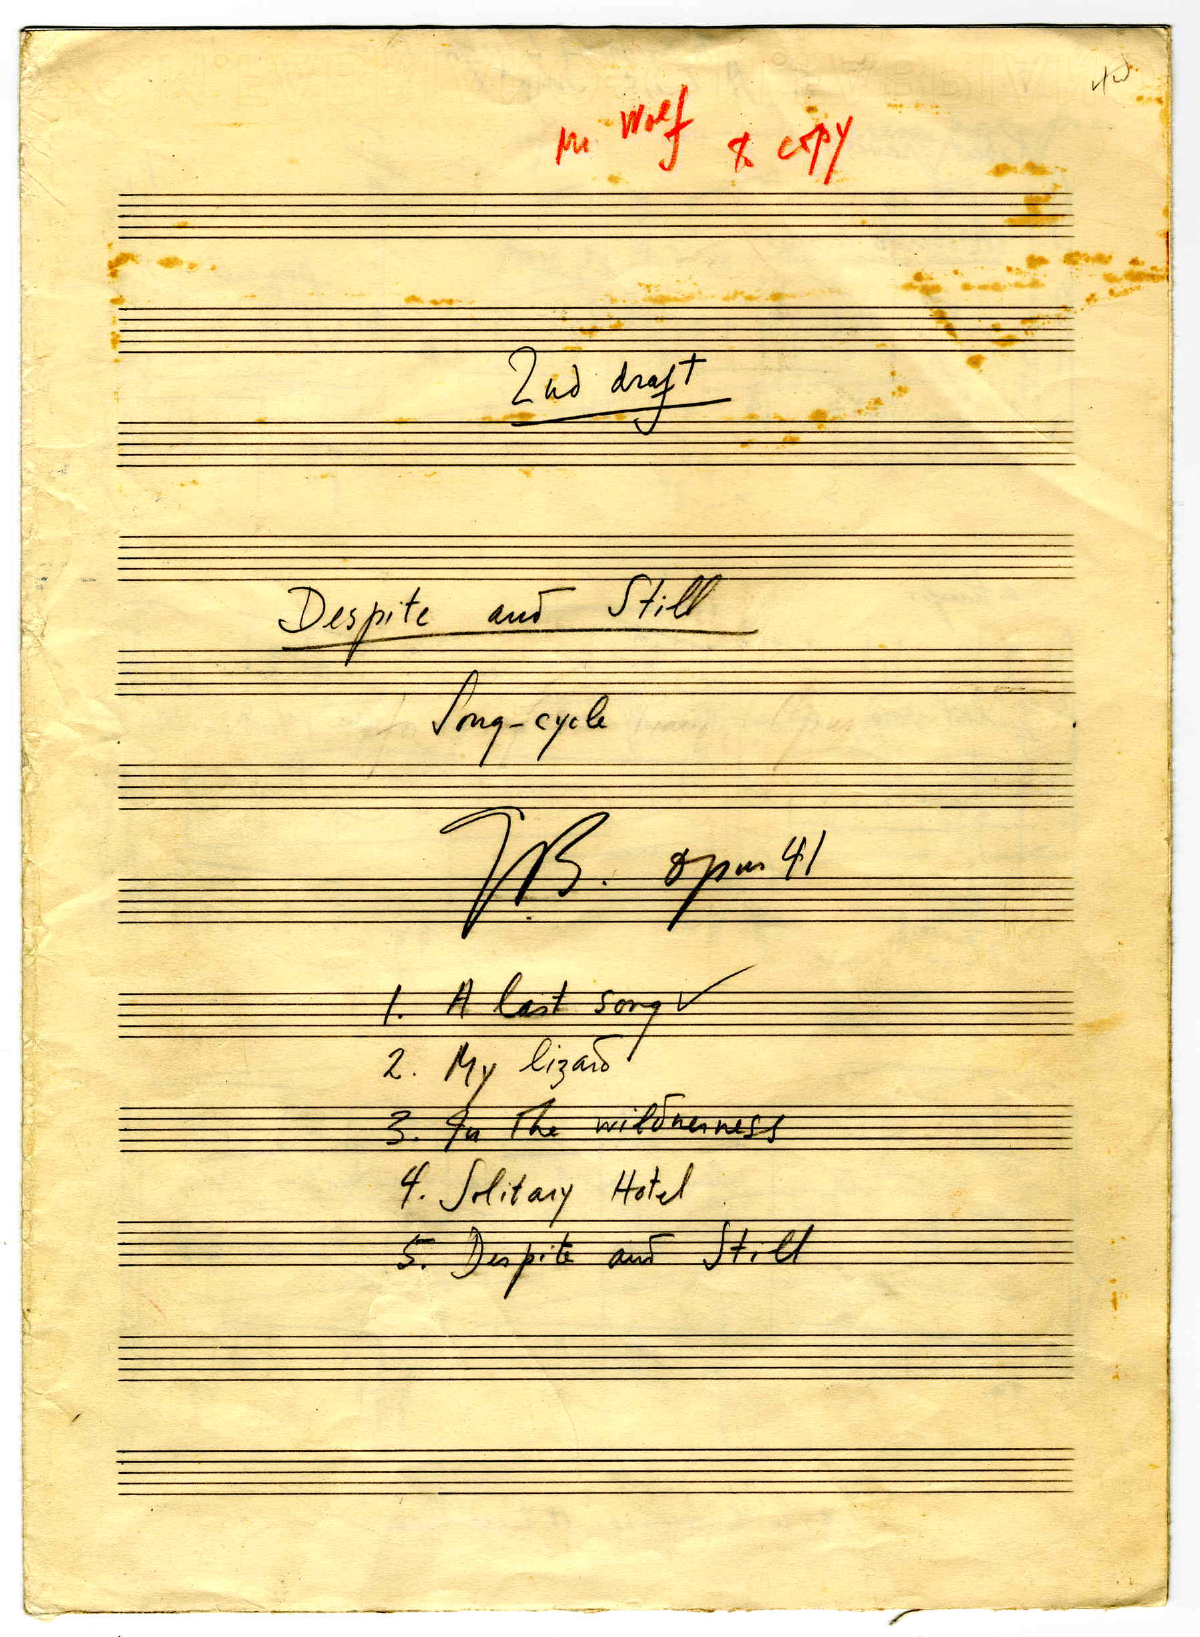 Mr Wolf to copy
2nd draft
Despite and Still
Song-cycle
SB. opus 41
1. A last song ✓
2. My lizard
3. In the wilderness
4. Solitary Hotel
5. Despite and Still